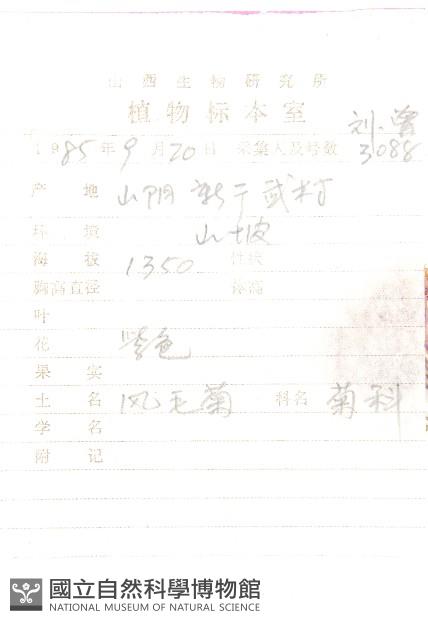 山西生物研究所
植物标本室
刘.曾
1985年9月20日 采集人及号数 3088
产地 山阴
环境 山坡
海拔 1350 性状
胸高直径 体高
叶
花 紫色
果实
土名 风毛菊 科名 菊科
学名
附记
國立自然科學博物館
NATIONAL MUSEUM OF NATURAL SCIENCE